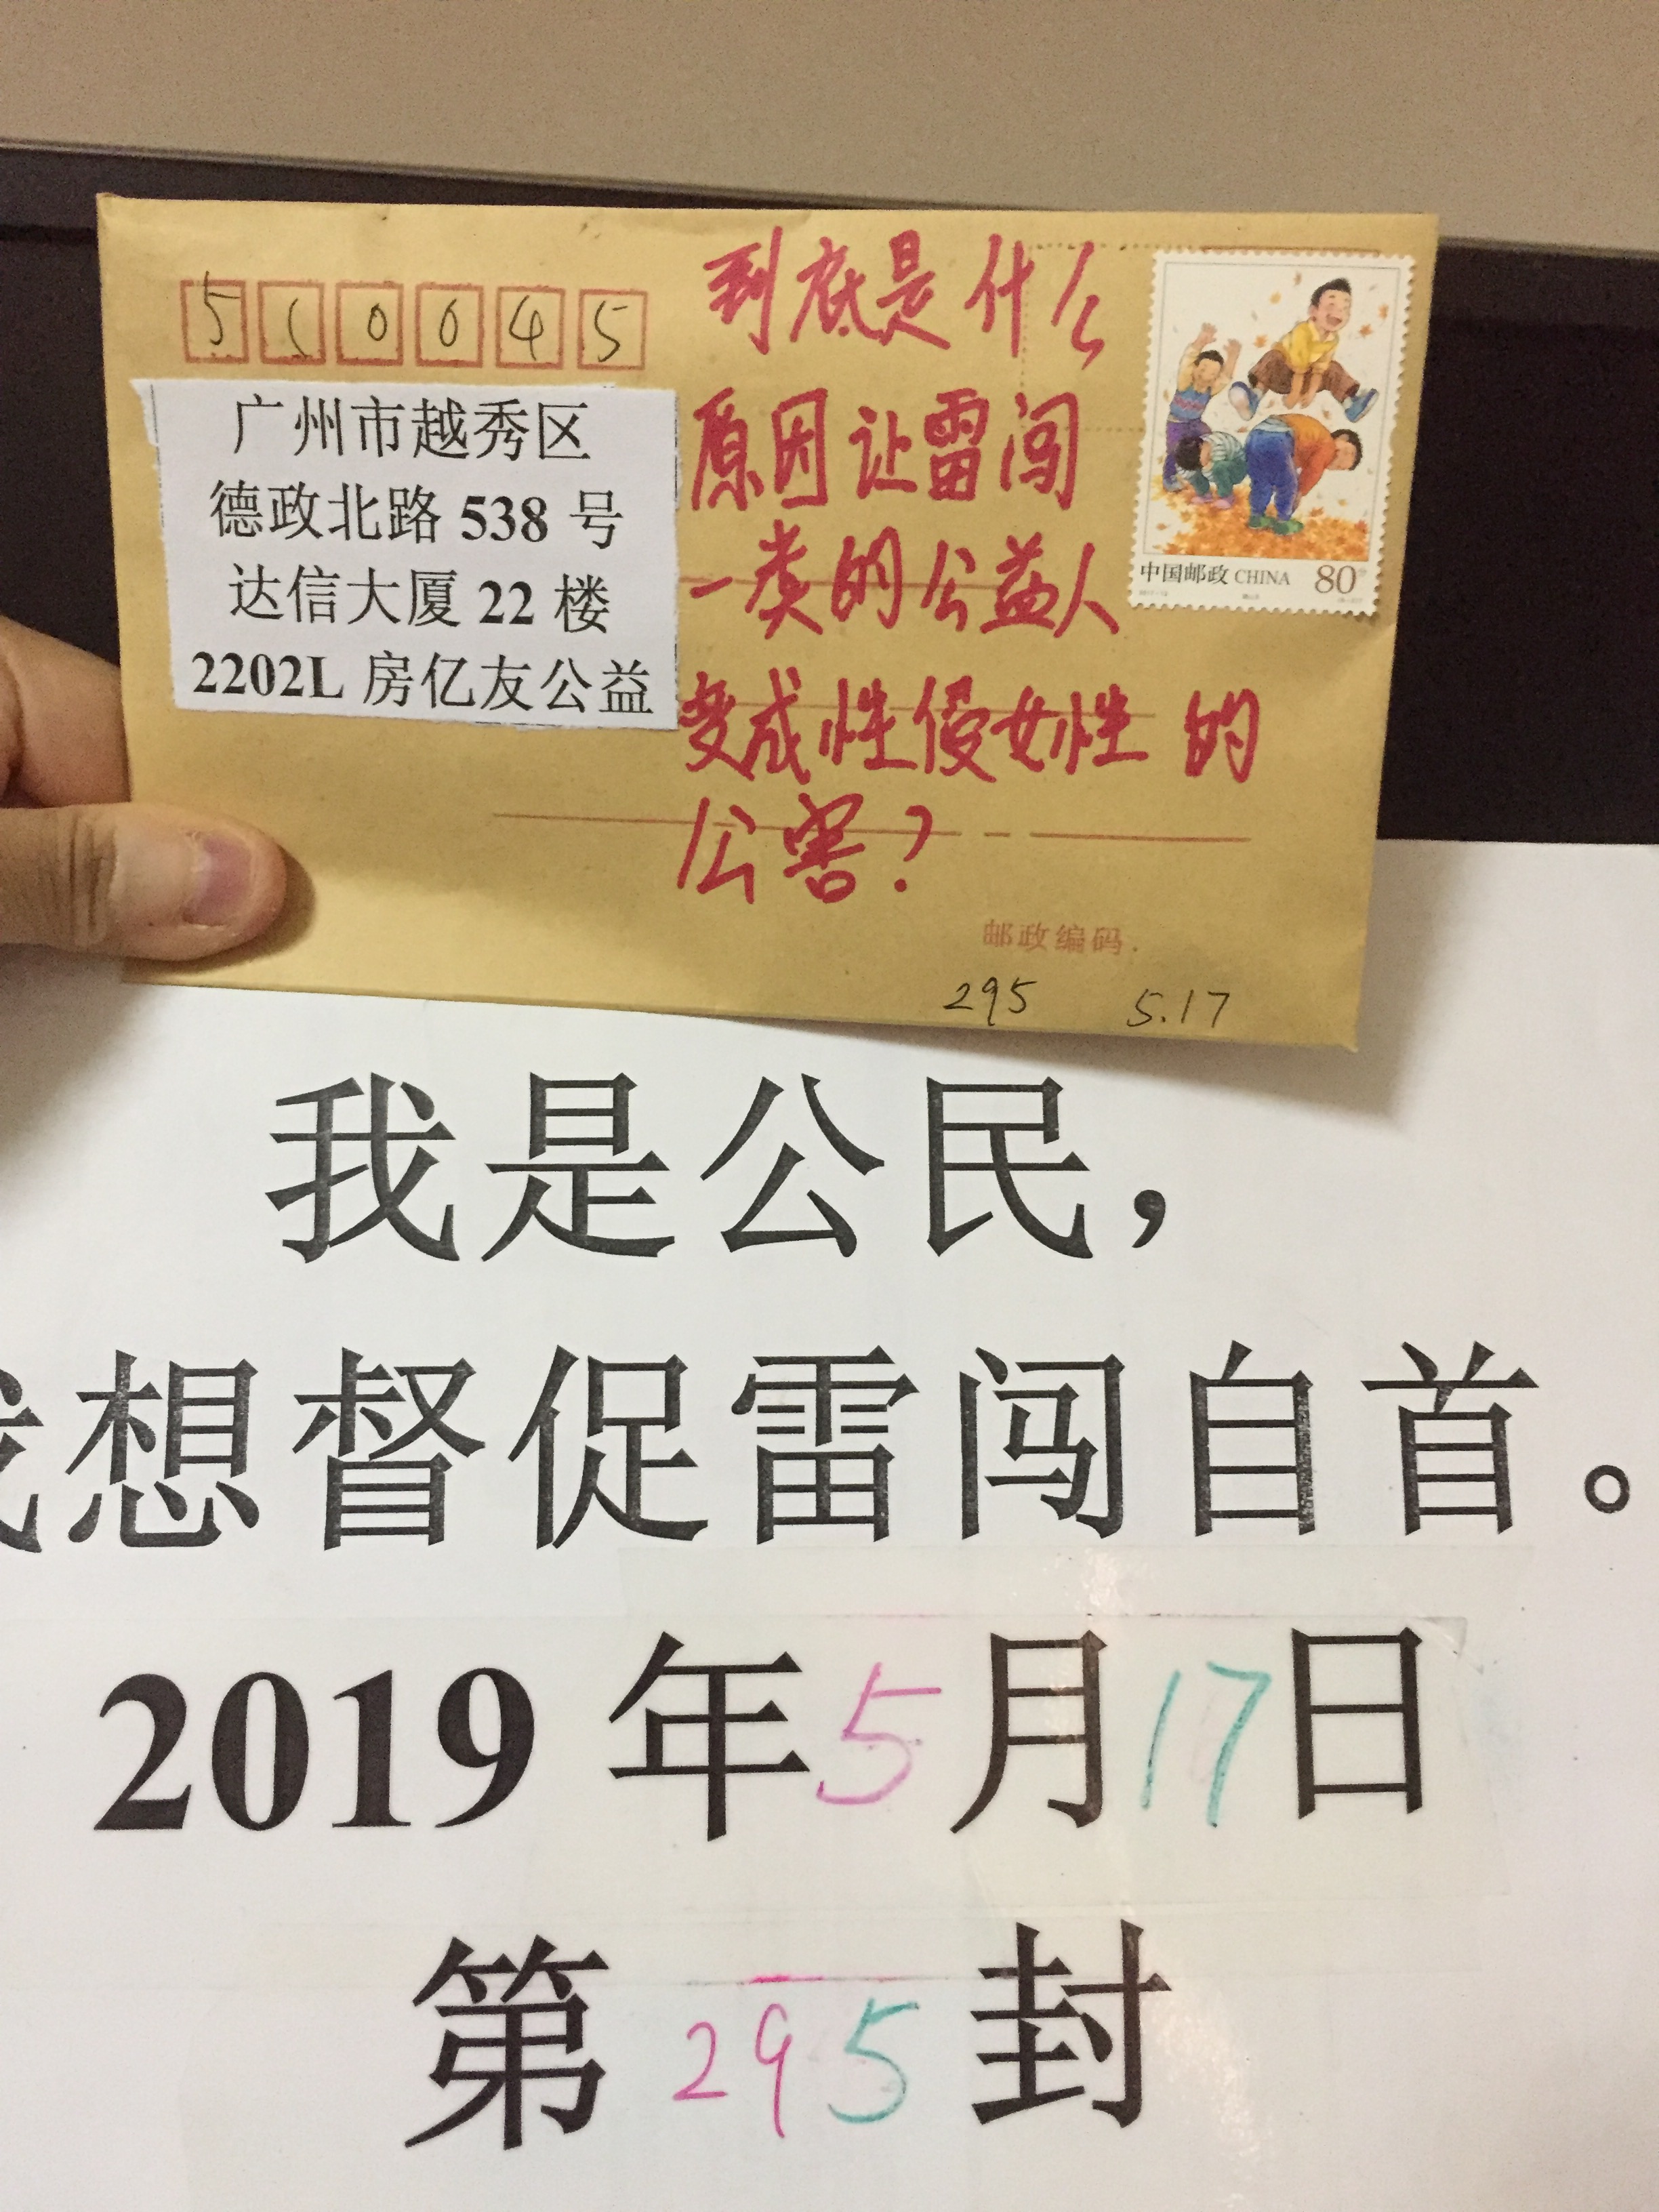 510045
广州市越秀区
德政北路 538 号
达信大厦 22 楼
2202L 房亿友公益
到底是什么
原因让雷闯
一类的公益人
变成性侵女性的
公害？
中国邮政 CHINA 80分
邮政编码.
295 5.17
我是公民，
我想督促雷闯自首。
2019 年 5 月 17 日
第 295 封